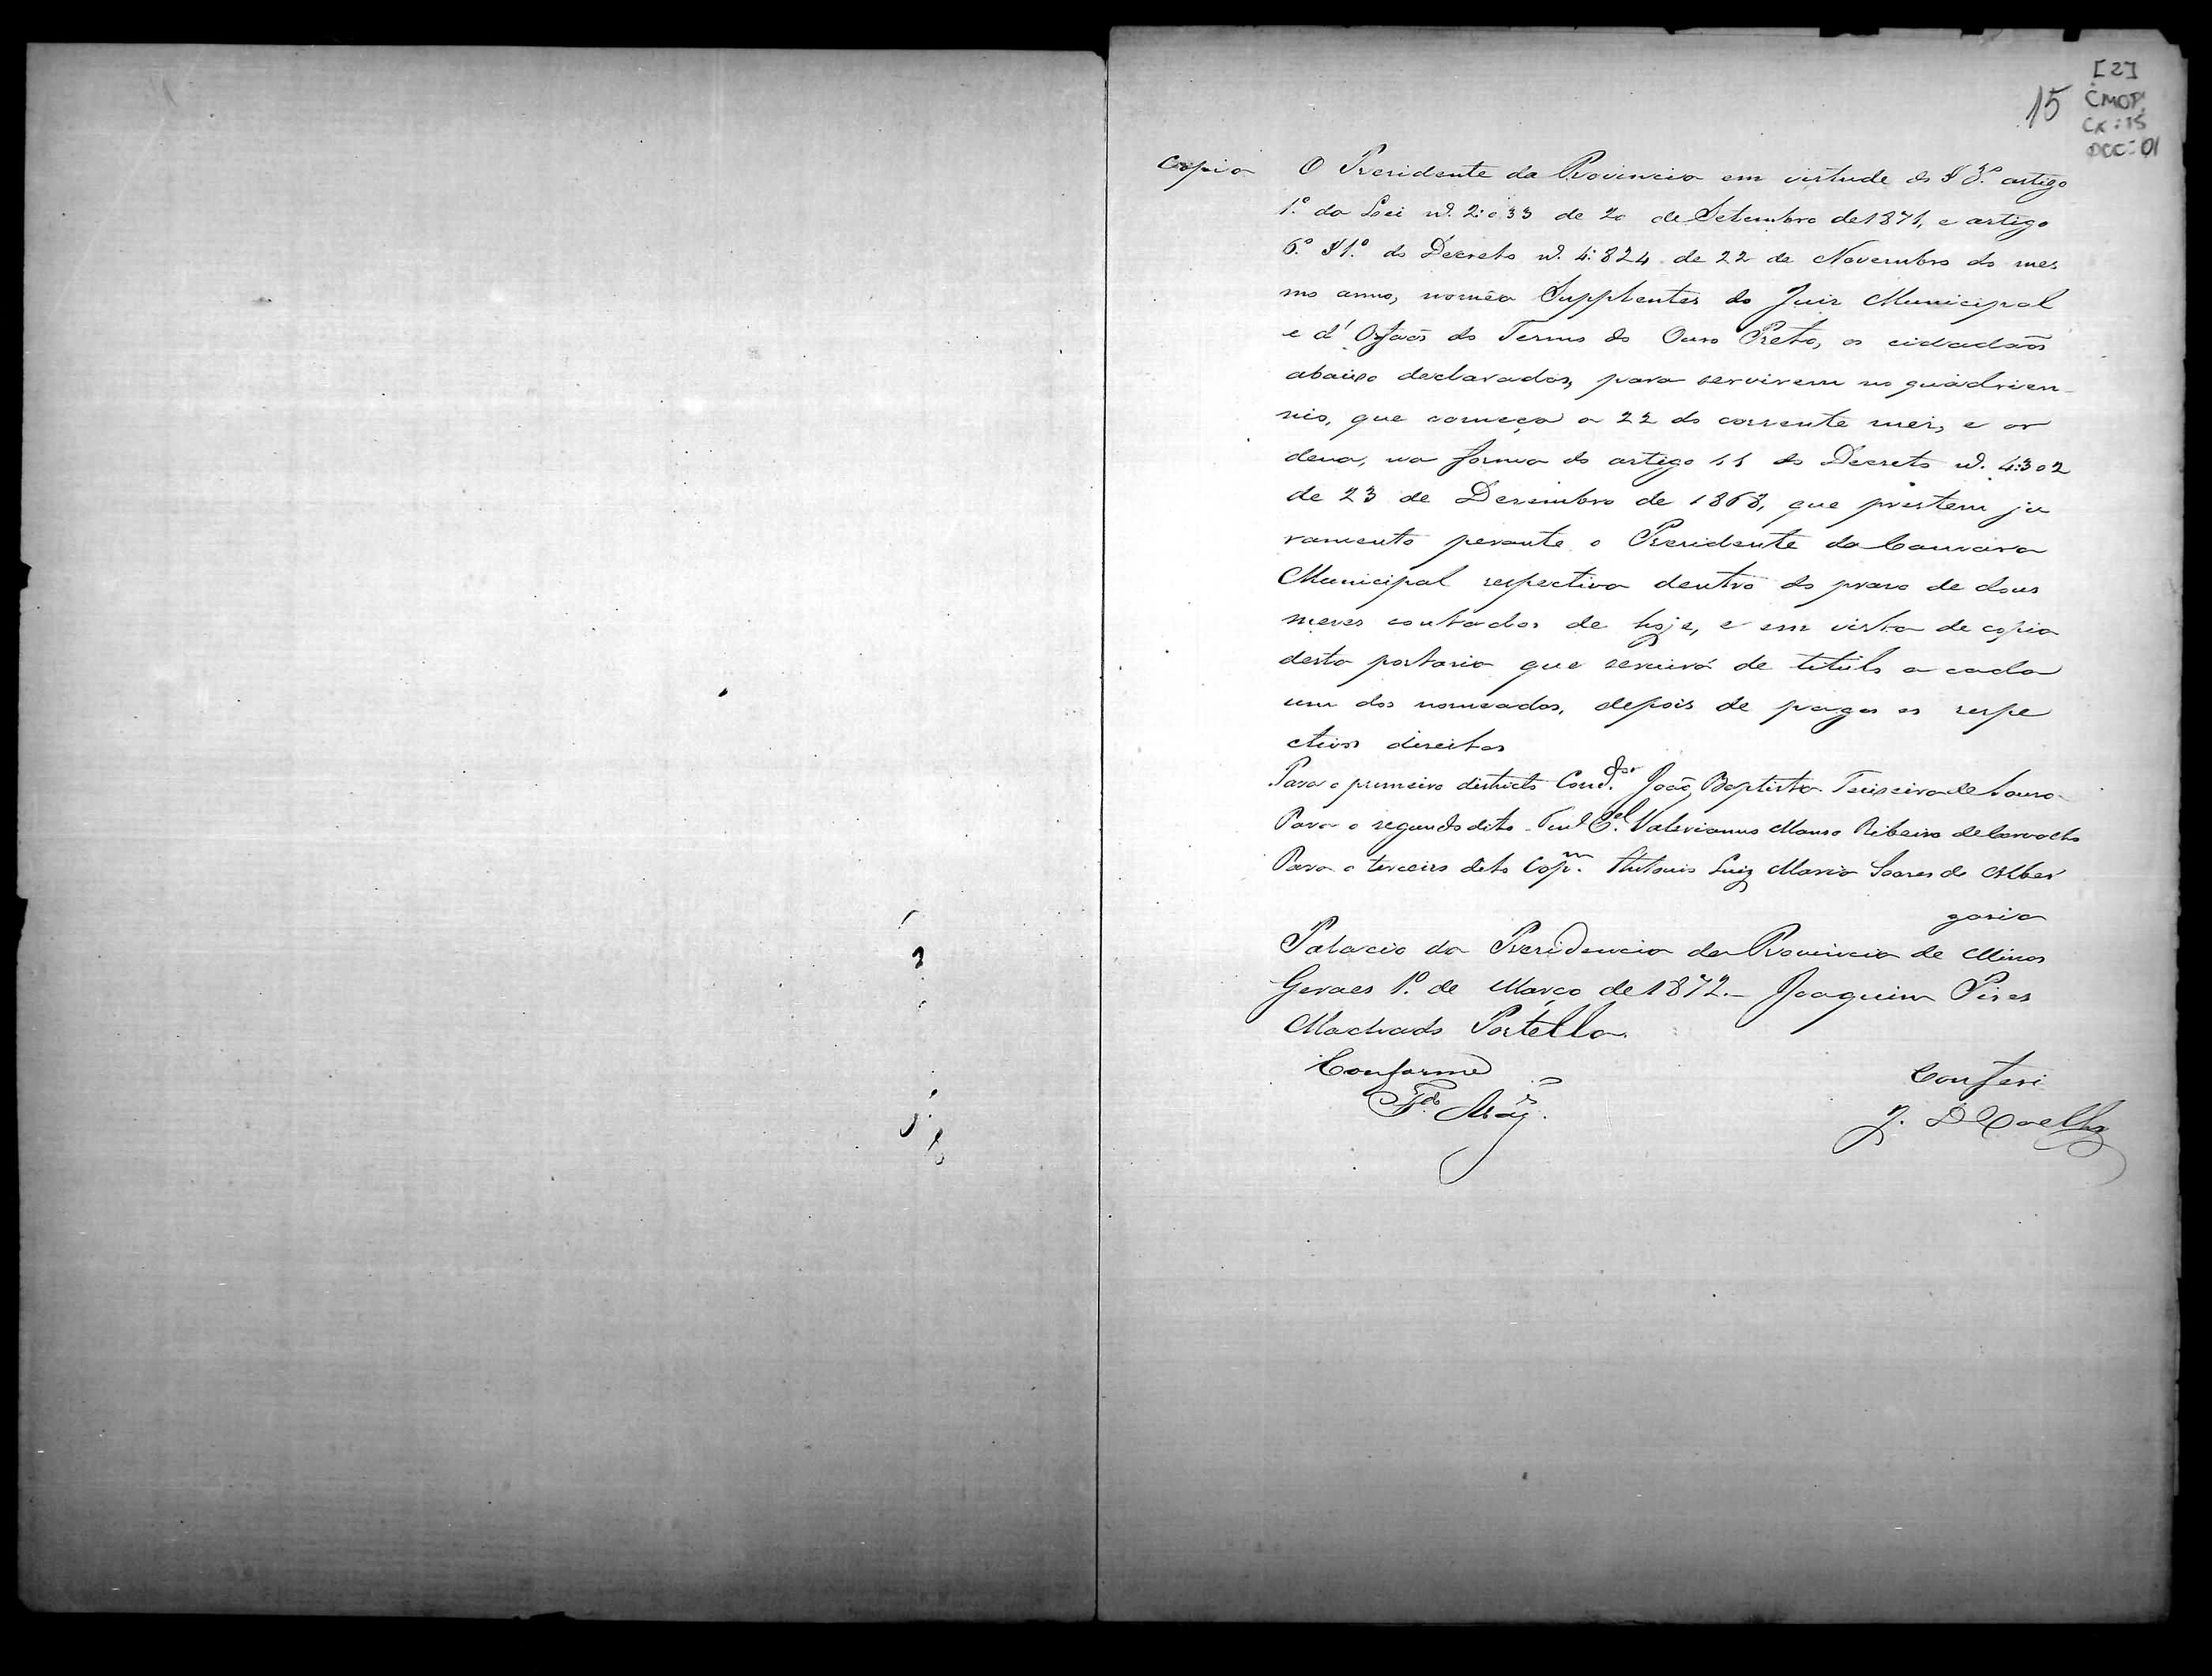 [2]
15 CMOP
CX:15
DOC:01
Copia O Presidente da Provincia em virtude do § 3.º artigo
1.º da Lei nº. 2:033 de 20 de Setembro de 1871, e artigo
6.º § 1.º do Decreto nº. 4:824 de 22 de Novembro do mes
mo anno, nomêa Supplentes do Juiz Municipal
e d'Orfaõs do Termo do Ouro Preto, os cidadaõs
abaixo declarados, para servirem no quadrien-
nio, que começa a 22 do corrente mez, e or
dena, na forma do artigo 11 do Decreto nº. 4:302
de 23 de Desembro de 1868, que prestem ju
ramento perante o Presidente da Camara
Municipal respectiva dentro do praso de dous
meses contados de hoje, e em vista de copia
desta portaria que servirá de titulo a cada
um dos nomeados, depois de pagos os respe
ctivos direitos
Para o primeiro districto Comd.dor Joaõ Baptista Teixeira de Souza
Para o segundo dito Tente C.el Valeriano Manso Ribeiro de Carvalho
Para o terceiro dito Cap.m Antonio Luiz Maria Soares de Alber
garia
Palacio da Presidencia da Provincia de Minas
Geraes 1.º de Março de 1872. Joaquim Pires
Machado Portella.
Conforme Conferi
J. D Coelho